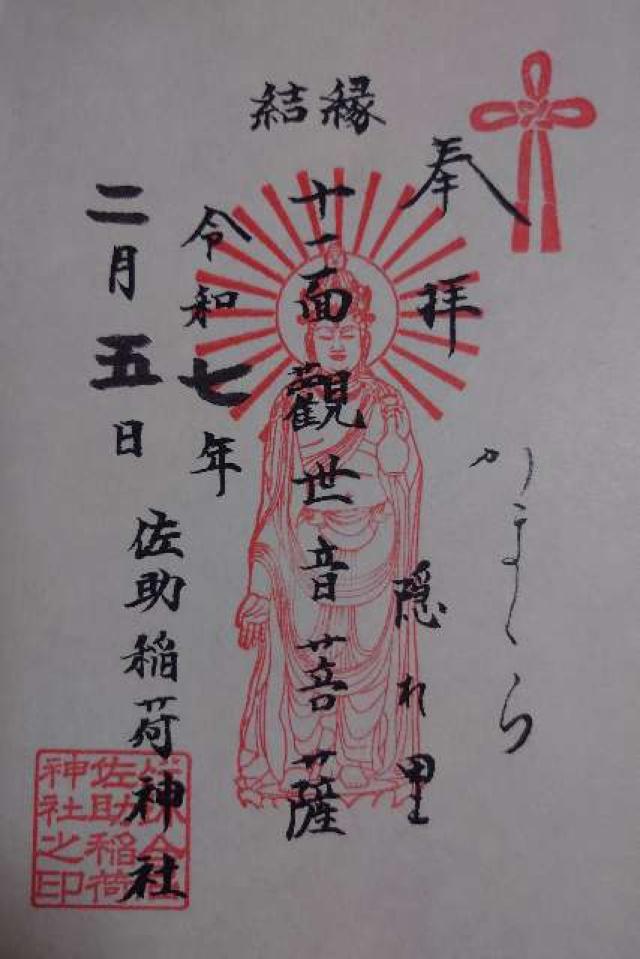 奉拝
かまくら
隠れ里
縁結
十一面觀世音菩薩
令和七年
二月五日
佐助稲荷神社
佐助稲荷
神社之印